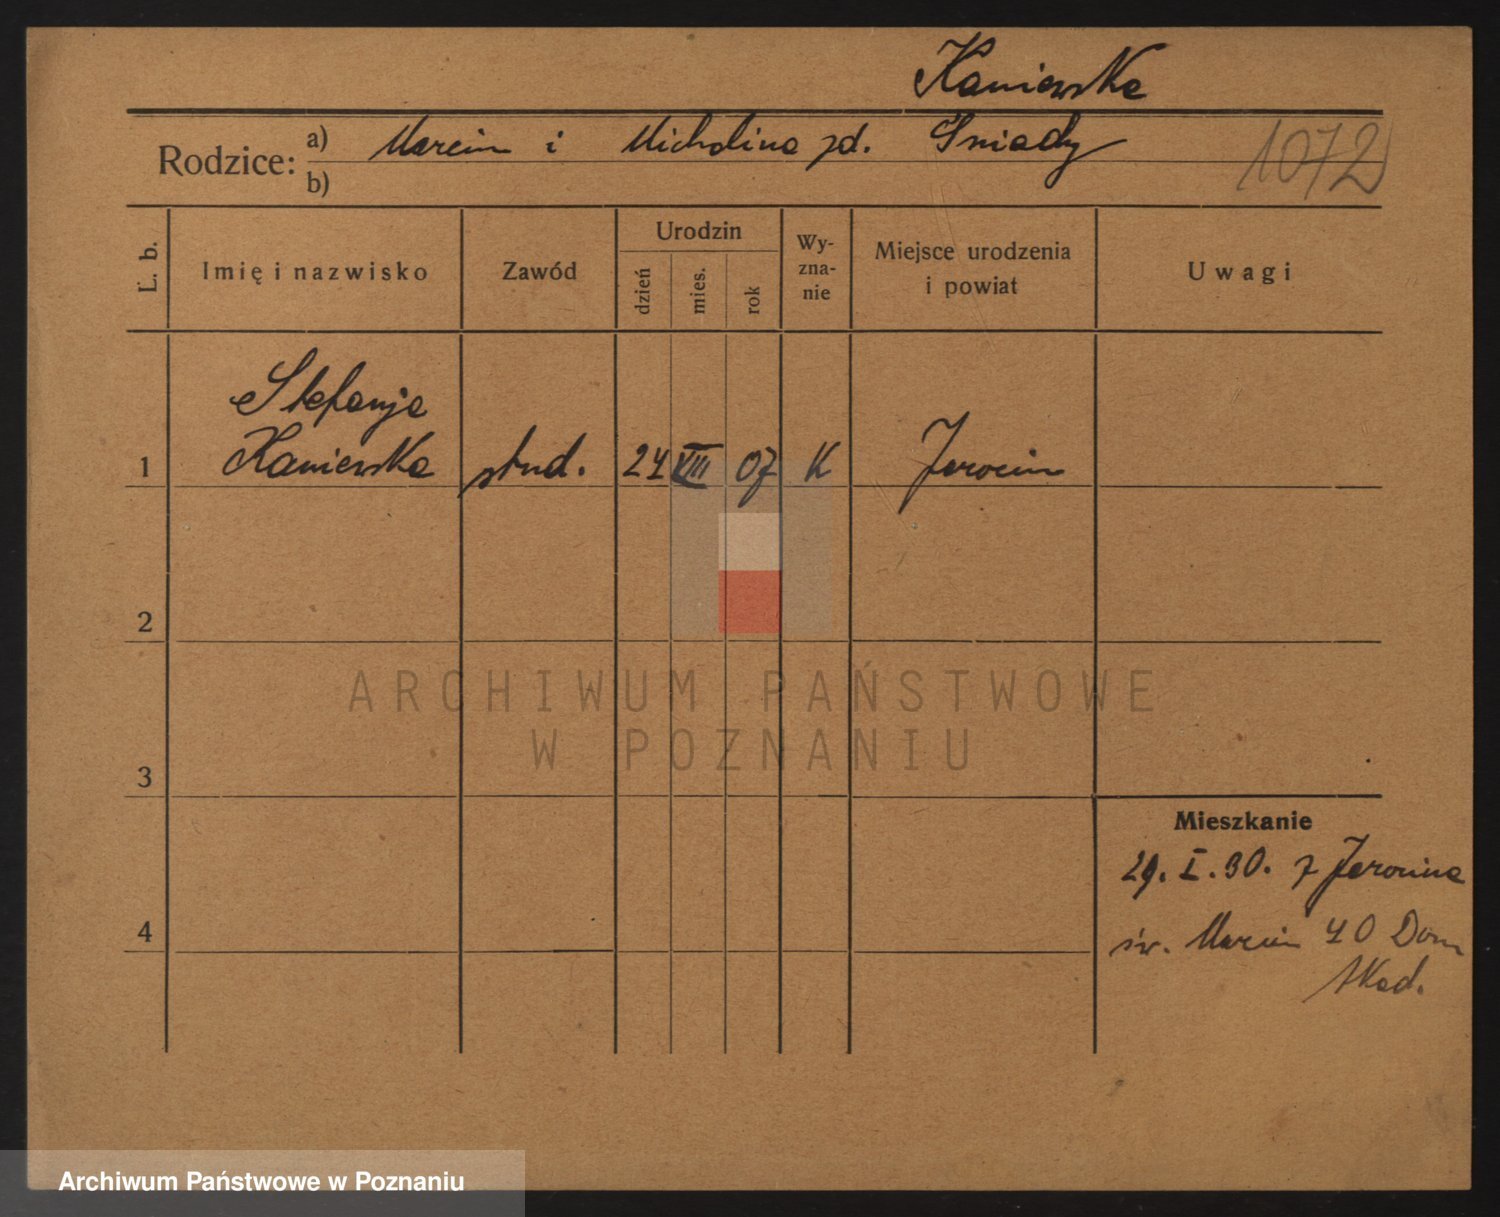 Kaniewska
Rodzice: a) Marcin i Michalina zd. Śniady
b)
1072
L. b.
Imię i nazwisko
Zawód
Urodzin
dzień
mies.
rok
Wy-
zna-
nie
Miejsce urodzenia
i powiat
Uwagi
Stefanja
1 Kaniewska stud. 24 VIII 07 K Jarocin
2
ARCHIWUM PAŃSTWOWE
W POZNANIU
3
Mieszkanie
29. I. 30. z Jarocina
4
św. Marcin 40 Dom
Akad.
Archiwum Państwowe w Poznaniu